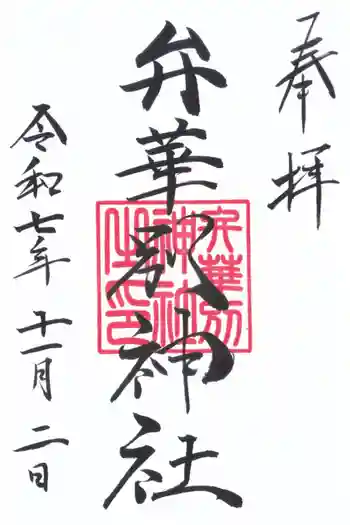 奉拝
弁華別神社
弁華別神社之印
令和七年十一月二日